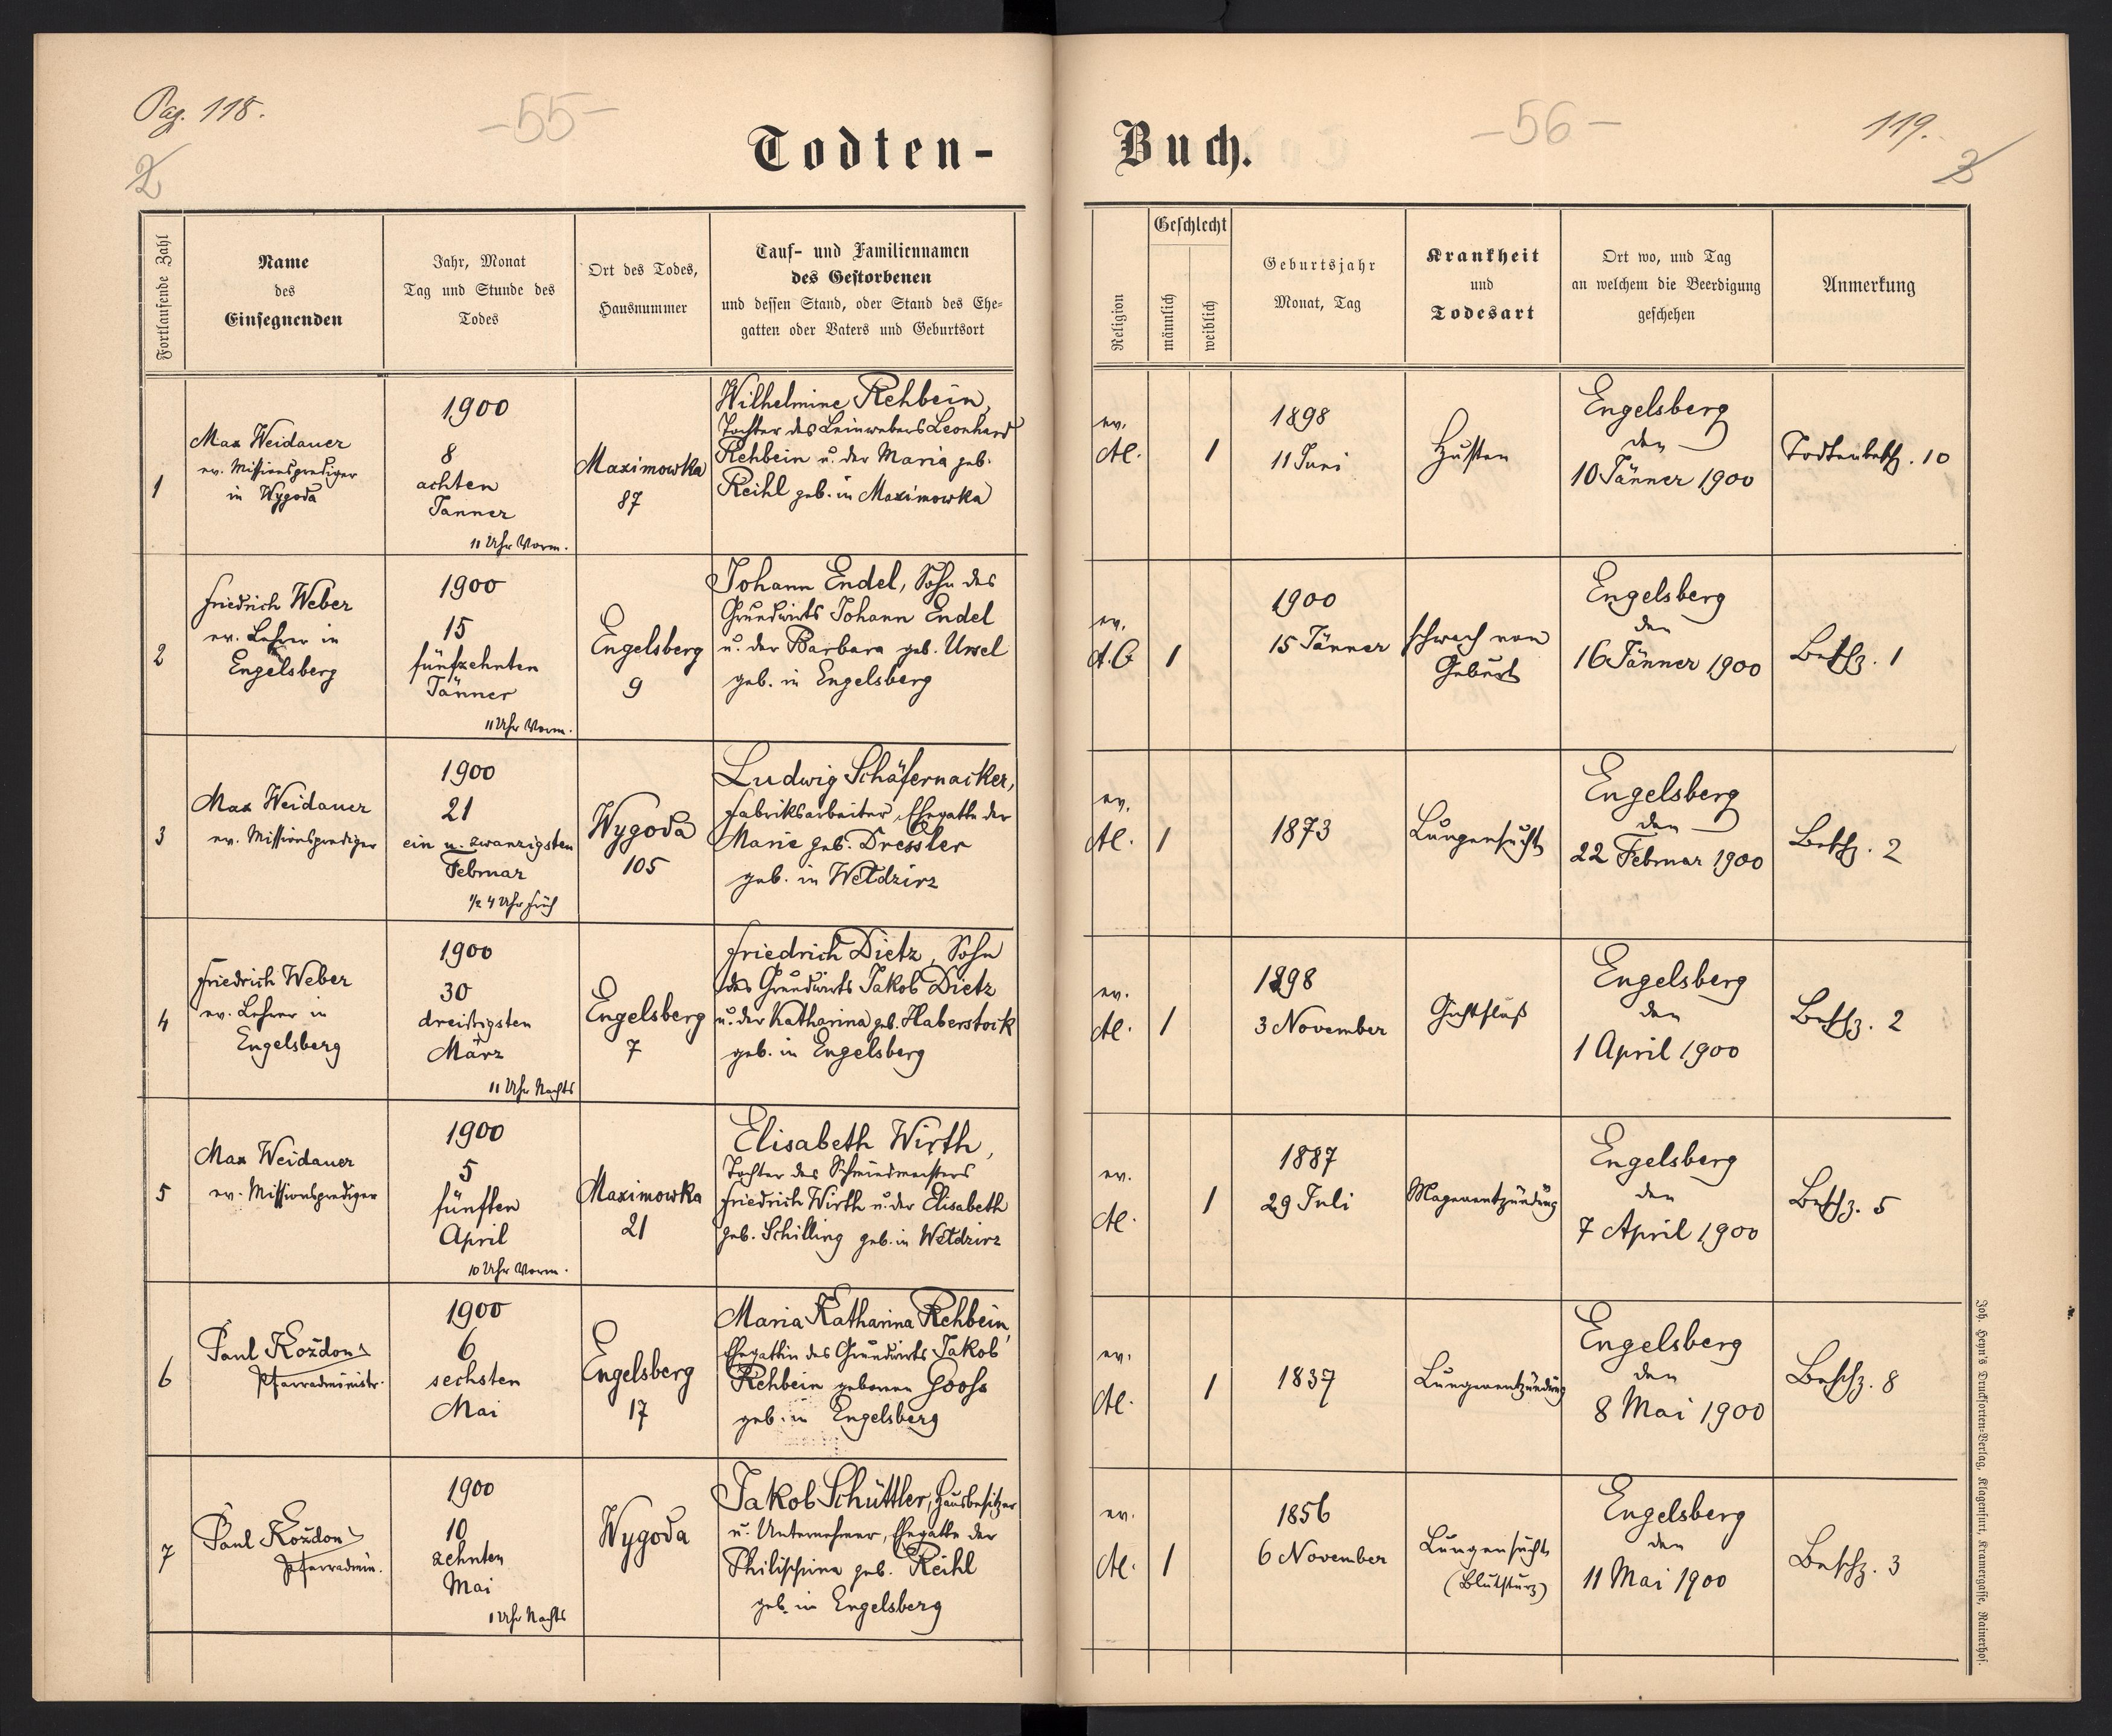 Pag. 118.
-55-
2
Todten-
Fortlaufende Zahl
Name
des
Einsegnenden
Jahr, Monat
Tag und Stunde des
Todes
Ort des Todes,
Hausnummer
Tauf- und Familiennamen
des Gestorbenen
und dessen Stand, oder Stand des Ehe-
gatten oder Vaters und Geburtsort
1
Max Weidauer
ev. Missionsprediger
in Wygoda
1900
8
achten
Jänner
11 Uhr Vorm.
Maximowka
87
Wilhelmine Rehbein,
Tochter des Leinwebers Leonhard
Rehbein u. der Maria geb.
Reihl geb. in Maximowka
2
Friedrich Weber
ev. Lehrer in
Engelsberg
1900
15
fünfzehnten
Jänner
11 Uhr Vorm.
Engelsberg
9
Johann Endel, Sohn des
Grundwirts Johann Endel
u. der Barbara geb. Unsel
geb. in Engelsberg
3
Max Weidauer
ev. Missionsprediger
1900
21
ein u. zwanzigsten
Februar
1/2 4 Uhr früh
Wygoda
105
Ludwig Schäfernacker,
Fabriksarbeiter, Ehegatte der
Marie geb. Dressler
geb. in Weldzirz
4
Friedrich Weber
ev. Lehrer in
Engelsberg
1900
30
dreißigsten
März
11 Uhr Nachts
Engelsberg
7
Friedrich Dietz, Sohn
des Grundwirts Jakob Dietz
u. der Katharina geb. Haberstock
geb. in Engelsberg
5
Max Weidauer
ev. Missionsprediger
1900
5
fünften
April
10 Uhr Vorm.
Maximowka
21
Elisabeth Wirth,
Tochter des Schmiedmeisters
Friedrich Wirth u. der Elisabeth
geb. Schilling geb. in Weldzirz
6
Paul Kożdoń
Pfarradministr.
1900
6
sechsten
Mai
Engelsberg
17
Maria Katharina Rehbein,
Ehegattin des Grundwirts Jakob
Rehbein geboren Gooss
geb. in Engelsberg
7
Paul Kożdoń
Pfarradmin.
1900
10
zehnten
Mai
1 Uhr Nachts
Wygoda
Jakob Schüttler, Hausbesitzer
u. Unternehmer, Ehegatte der
Philippina geb. Reihl
geb. in Engelsberg
Buch.
-56-
119.
2
Religion
Geschlecht
männlich
weiblich
Geburtsjahr
Monat, Tag
Krankheit
und
Todesart
Ort wo, und Tag
an welchem die Beerdigung
geschehen
Anmerkung
ev.
A.
1
1898
11 Juni
Husten
Engelsberg
den
10 Jänner 1900
Todtenbesch. 10
ev.
A.B
1
1900
15 Jänner
schwach von
Geburt
Engelsberg
den
16 Jänner 1900
Beschz. 1
ev.
A.
1
1873
Lungensucht
Engelsberg
den
22 Februar 1900
Besch. 2
ev.
A.
1
1898
3 November
Gichtfluß
Engelsberg
den
1 April 1900
Beschz. 2
ev.
A.
1
1887
29 Juli
Magenentzündung
Engelsberg
den
7 April 1900
Beschz. 5
ev.
A.
1
1837
Lungenentzündung
Engelsberg
den
8 Mai 1900
Beschz. 8
ev.
A.
1
1856
6 November
Lungensucht
(Blutsturz)
Engelsberg
den
11 Mai 1900
Beschz. 3
Joh. Heyn's Drucksorten-Verlag, Klagenfurt, Kramergasse, Rainerhof.